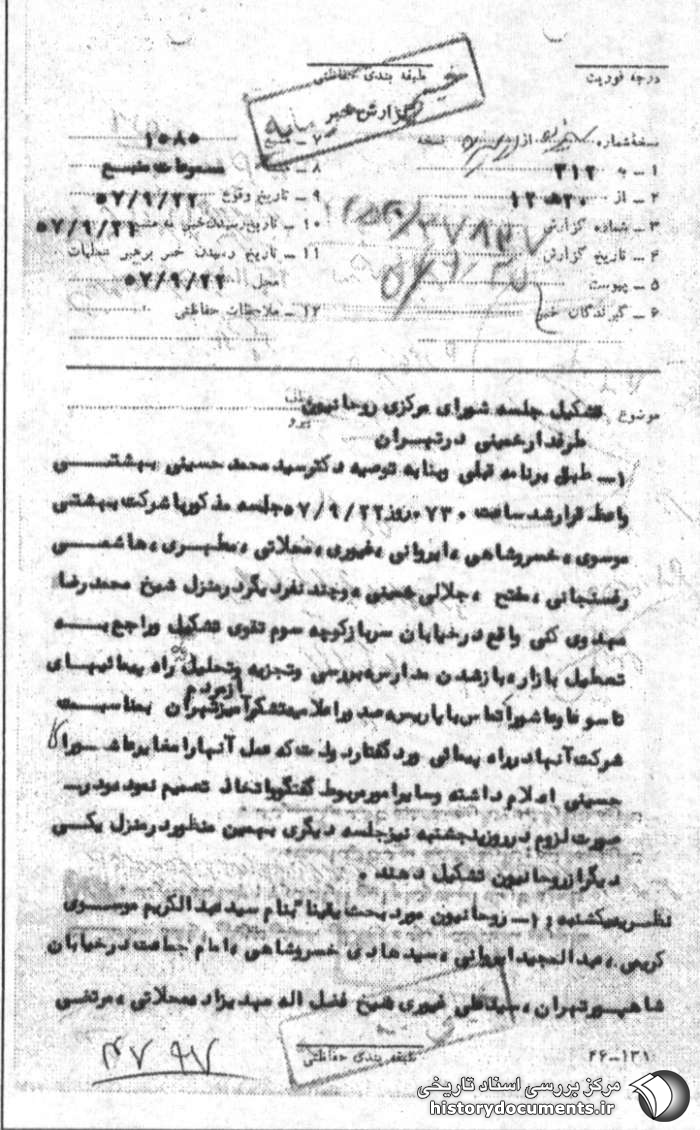 درجه فوریت
طبقه بندی حفاظتی
خیلی
گزارش خبر
نسخه شماره از نسخه
۱ – به ۳۱۲
۲ – از ۲۰ هـ ۱۲
۳ – شماره گزارش
۴ – تاریخ گزارش
۵ – پیوست
۶ – گیرندگان خبر
۷ – منبع ۱۰۸۵
۸ – مسموعات منبع
۹ – تاریخ وقوع ۵۷/۹/۲۲
۱۰ – تاریخ رسیدن خبر به منبع ۵۷/۹/۲۲
۱۱ – تاریخ رسیدن خبر برهبر عملیات
محل ۵۷/۹/۲۲
۱۲ – ملاحظات حفاظتی
موضوع تشکیل جلسه شورای مرکزی روحانیون
طرفدار خمینی در تهران
عطف
پیرو
۱– طبق برنامه قبلی وبنا به توصیه دکتر سید محمد حسینی بهشتی
واعظ قرار شد ساعت ۰۷۳۰ روز ۵۷/۹/۲۲ جلسه مذکور با شرکت بهشتی
موسوی ، خسروشاهی ، ایروانی ، غیوری ، محلاتی ، مطهری ، هاشمی
رفسنجانی ، مفتح ، جلالی خمینی ، وچند نفر دیگر در منزل شیخ محمد رضا
مهدوی کنی واقع در خیابان سرباز کوچه سوم تقوی تشکیل وراجع به
تعطیل بازار ، باز شدن مدارس بررسی وتجزیه وتحلیل راه پیمائیهای
تاسوعا وعاشورا تماس با پاریس صدور اعلامیه تشکر آمیز از مردم تهران بمناسبت
شرکت آنها در راه پیمائی ورد گفتار دولت که عمل آنها را مغایر عاشورای
حسینی اعلام داشته وسایر امور مربوط گفتگو واتخاذ تصمیم نموده ودر
صورت لزوم در روز پنجشنبه نیز جلسه دیگری بهمین منظور در منزل یکی
دیگر از روحانیون تشکیل دهند .
نظریه یکشنبه : ۱– روحانیون مورد بحث یقینا بنام سید عبدالکریم موسوی
کریمی ، عبدالمجید ایروانی ، سید هادی خسروشاهی ، امام جماعت در خیابان
شاهپور تهران ، سید علی غیوری شیخ فضل اله مهدیزاده محلاتی ، مرتضی
طبقه بندی حفاظتی
۲۶–۱۳۱
۴۷ ۹۷
مرکز بررسی اسناد تاریخی
historydocuments.ir